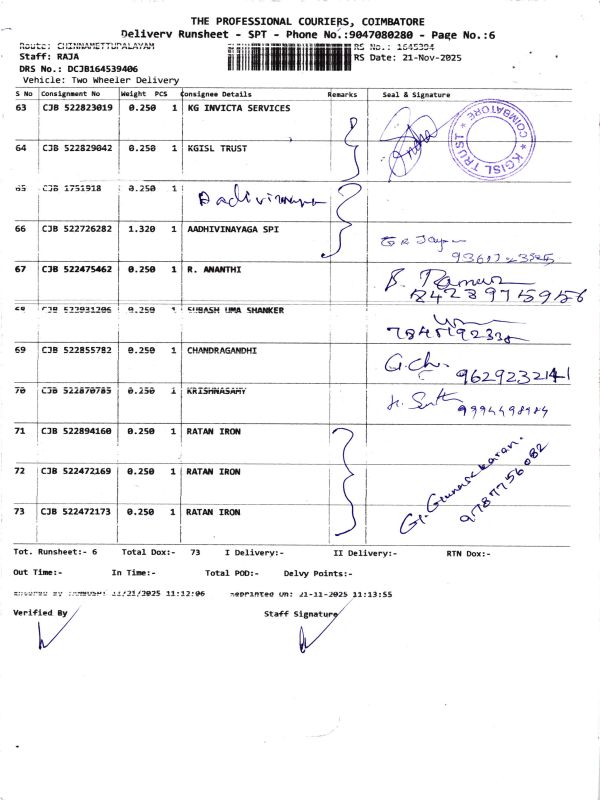 THE PROFESSIONAL COURIERS, COIMBATORE
Delivery Runsheet - SPT - Phone No.:9047080280 - Page No.:6
Route: CHINNAMETTUPALAYAM RS No.: 1645394
Staff: RAJA RS Date: 21-Nov-2025
DRS No.: DCJB164539406
Vehicle: Two Wheeler Delivery
S No Consignment No Weight PCS Consignee Details Remarks Seal & Signature
63 CJB 522823019 0.250 1 KG INVICTA SERVICES
64 CJB 522829042 0.250 1 KGISL TRUST
KGISL TRUST * COIMBATORE *
65 CJB 1751918 0.250 1 Aadhivinayaga
66 CJB 522726282 1.320 1 AADHIVINAYAGA SPI
67 CJB 522475462 0.250 1 R. ANANTHI
68 CJB 522931206 0.250 1 SUBASH UMA SHANKER
69 CJB 522855782 0.250 1 CHANDRAGANDHI G.Ch. 9629232141
70 CJB 522870785 0.250 1 KRISHNASAMY
71 CJB 522894160 0.250 1 RATAN IRON
72 CJB 522472169 0.250 1 RATAN IRON
73 CJB 522472173 0.250 1 RATAN IRON
G. Gunasekaran.
9787756082
Tot. Runsheet:- 6 Total Dox:- 73 I Delivery:- II Delivery:- RTN Dox:-
Out Time:- In Time:- Total POD:- Delvy Points:-
11/21/2025 11:12:06 Reprinted On: 21-11-2025 11:13:55
Verified By Staff Signature